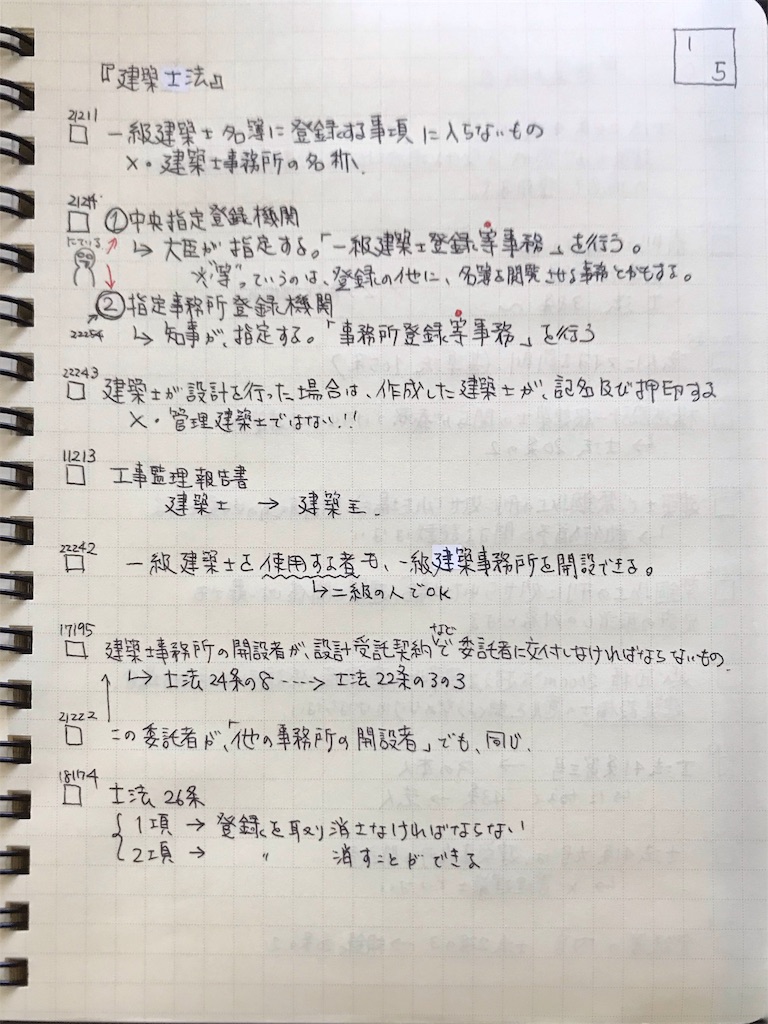 1
5
『建築士法』
21211
□ 一級建築士名簿に登録する事項に入らないもの
×・建築士事務所の名称、
2124
□ ①中央指定登録機関
にている
↳ 大臣が指定する。「一級建築士登録等事務」を行う。
※"等"っていうのは、登録の他に、名簿を閲覧させる事務とかもする。
② 指定事務所登録機関
22254 ↳ 知事が、指定する。「事務所登録等事務」を行う
22243
□ 建築士が設計を行った場合は、作成した建築士が、記名及び押印する
×・管理建築士ではない!!
11213
□ 工事監理報告書
建築士 → 建築主.
22242
□ 一級建築士を使用する者も、一級建築事務所を開設できる。
↳二級の人でOK
17195
□ 建築士事務所の開設者が、設計受託契約などで委託者に交付しなければならないもの.
↳ 士法24条の8 ----→ 士法22条の3の3
21222
□ この委託者が、「他の事務所の開設者」でも、同じ.
18174
□ 士法26条
1項 → 登録を取り消さなければならない
2項 → 〃 消すことができる